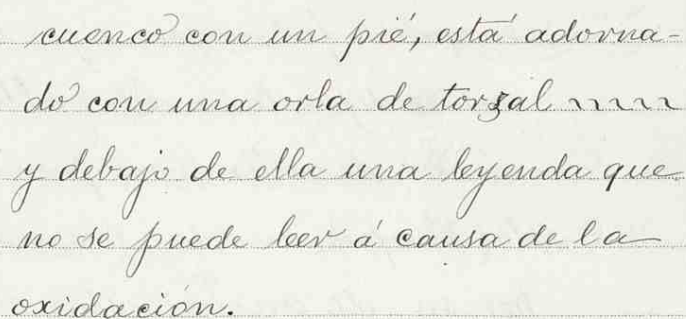 cuenco con un pié, está adorna-
do con una orla de torzal ~~~~
y debajo de ella una leyenda que
no se puede leer á causa de la
oxidación.